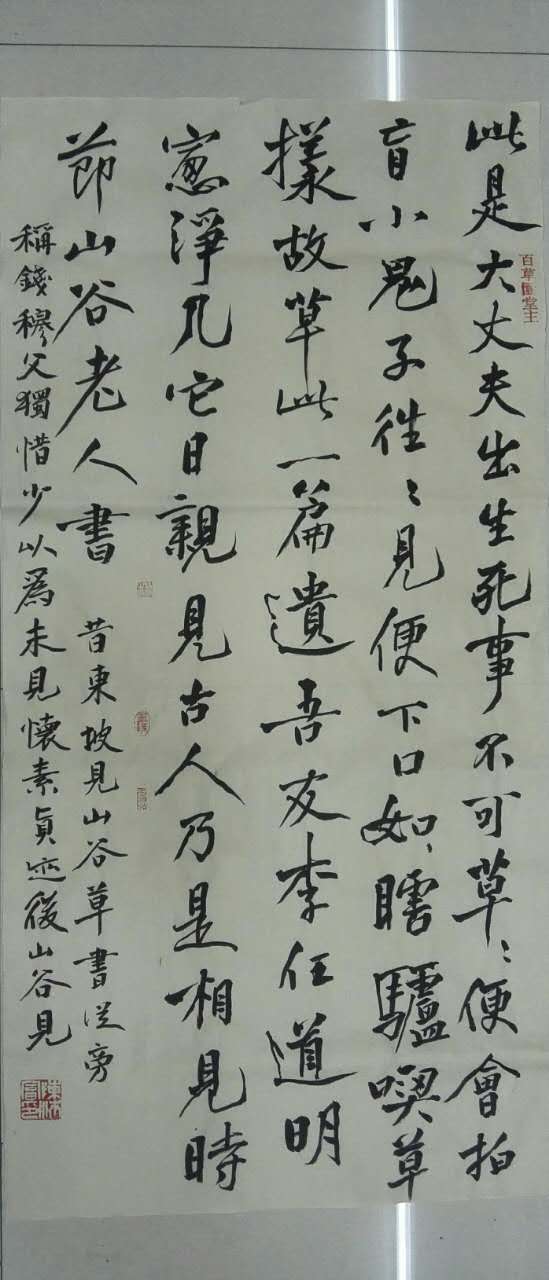 此是大丈夫出生死事不可草〻便會拍
盲小鬼子往〻見便下口如瞎驢喫草
樣故草此一篇遺吾友李任道明
窓淨几它日親見古人乃是相見時
節山谷老人書
昔東坡見山谷草書從旁
稱錢穆父獨惜少以爲未見懷素真迹後山谷見
百草
堂主